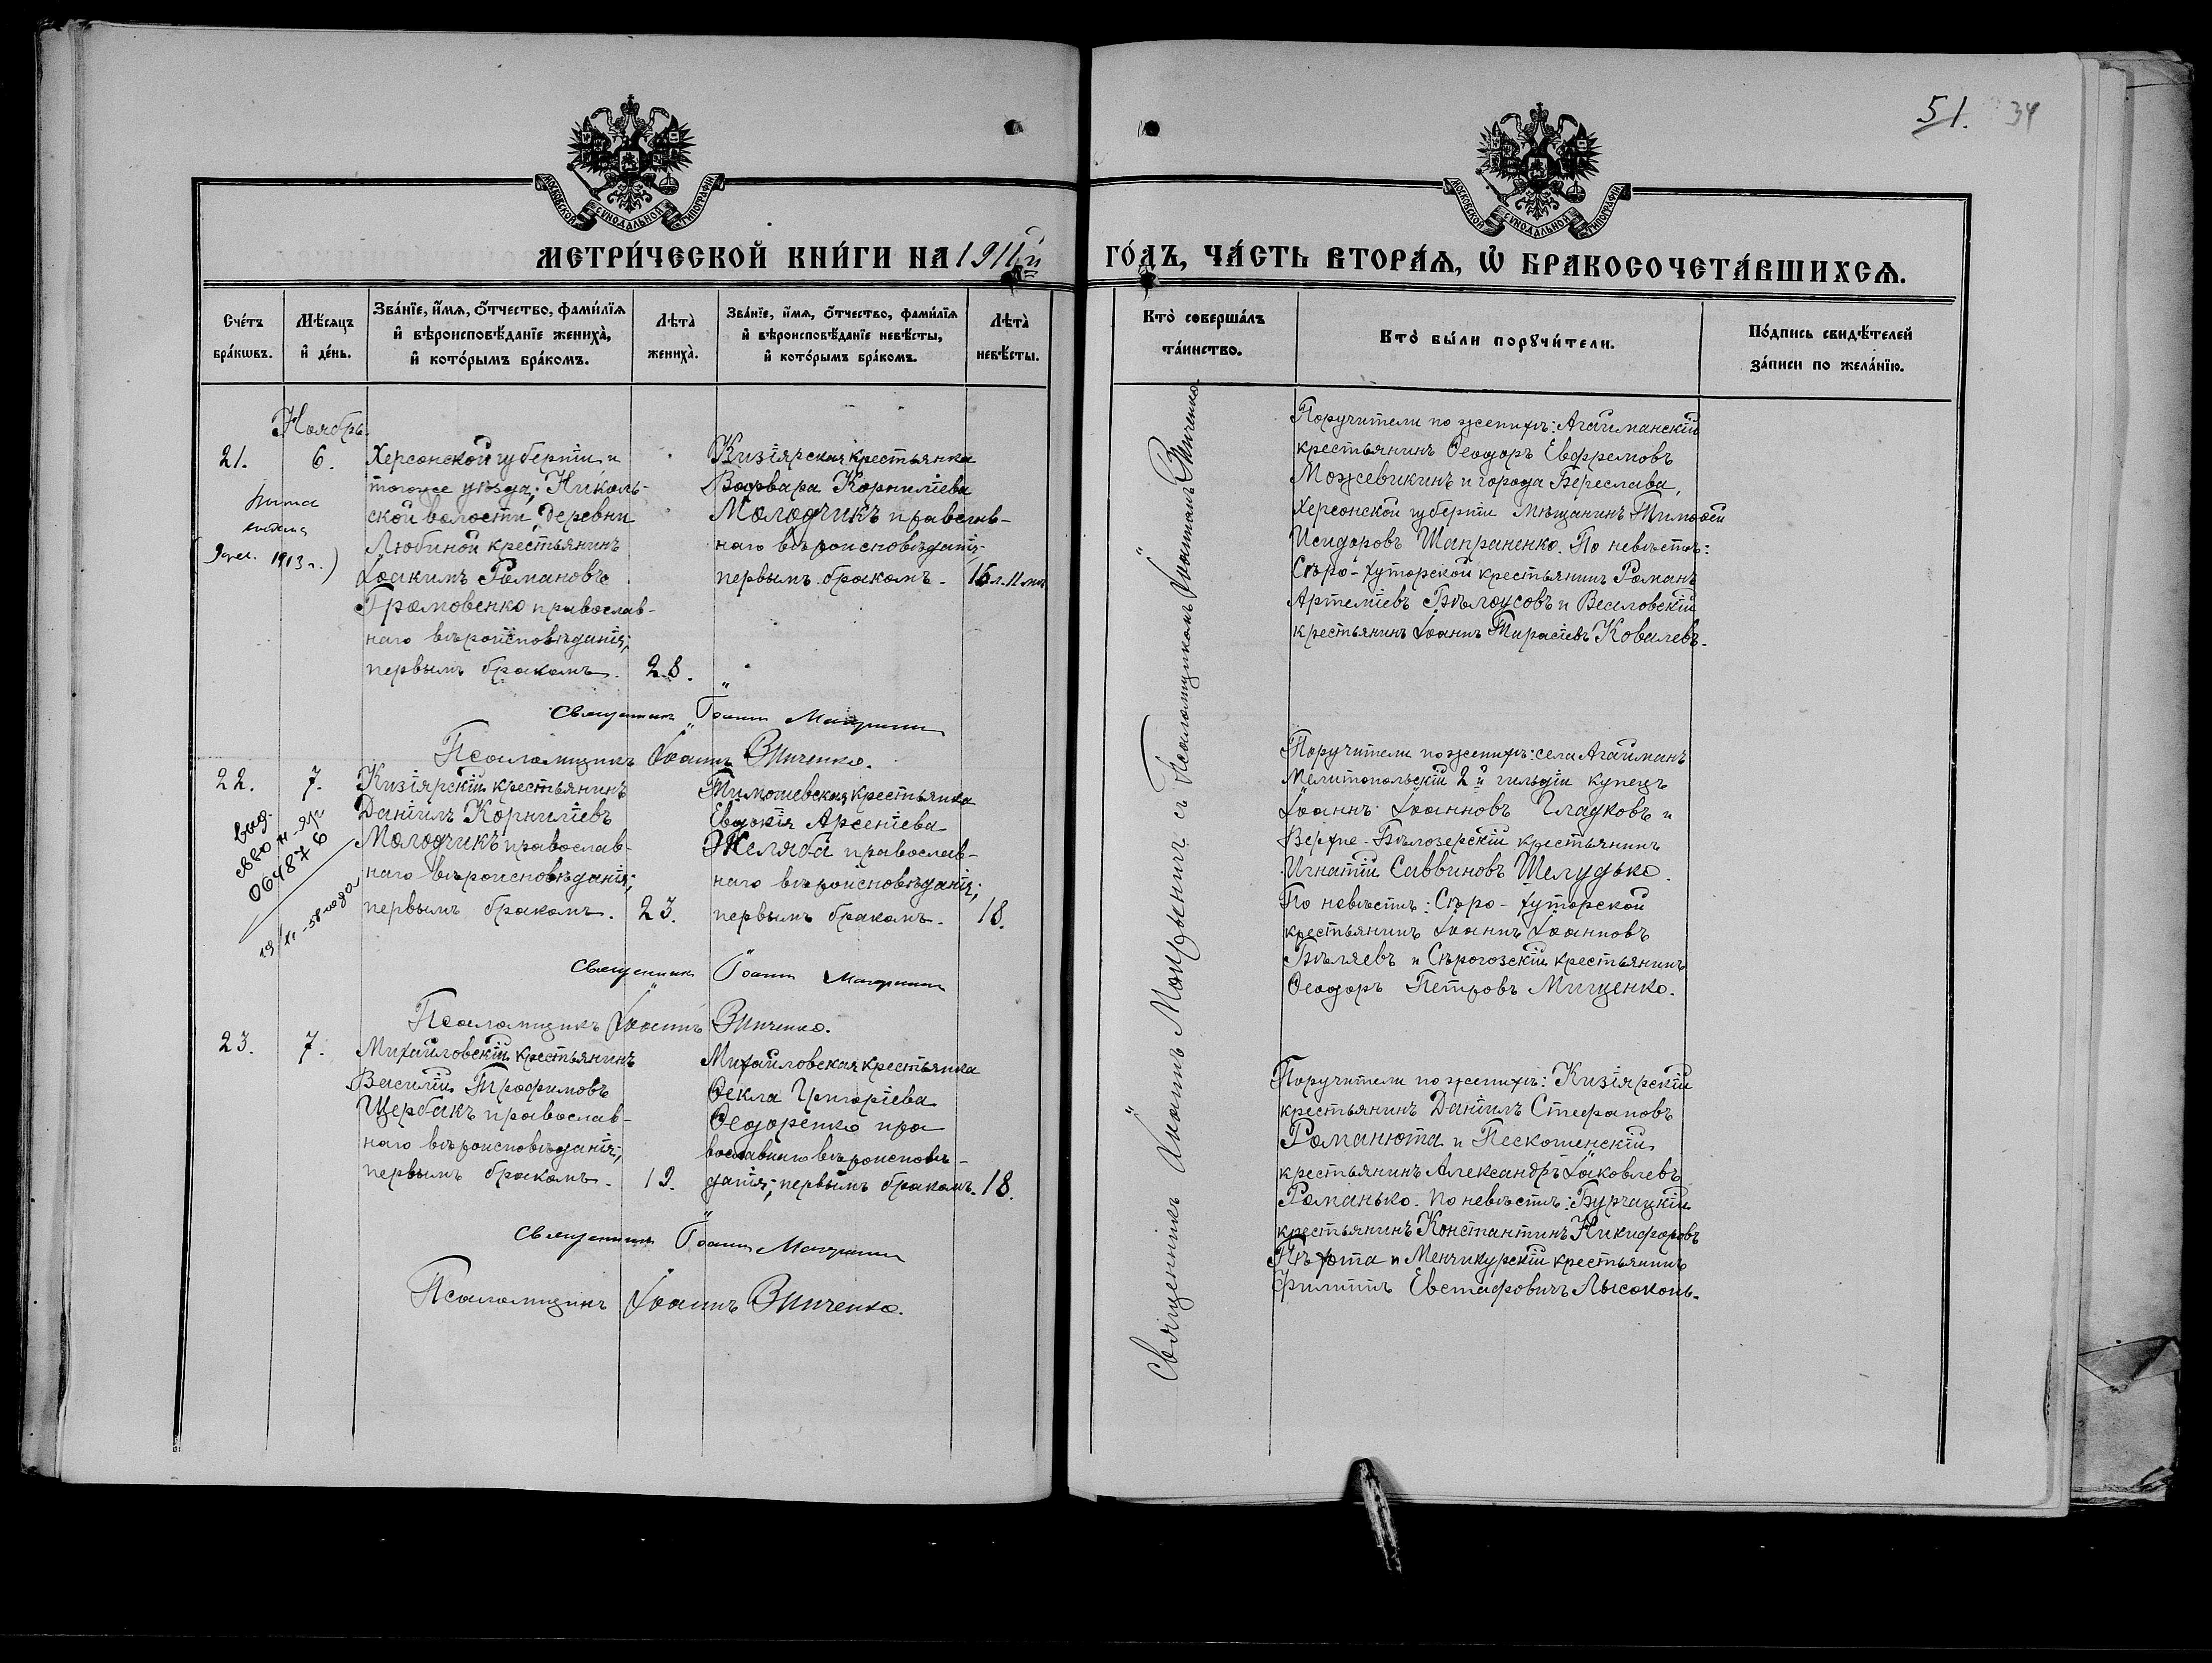 51. 34
МОСКОВСКОЙ СѴНОДАЛЬНОЙ ТИПОГРАФІИ
МОСКОВСКОЙ СѴНОДАЛЬНОЙ ТИПОГРАФІИ
МЕТРИ́ЧЕСКОЙ КНИ́ГИ НА 1911й ГО́ДЪ, ЧА́СТЬ ВТОРА́Ѧ, Ѽ БРАКОСОЧЕТА́ВШИХСѦ.
Сче́тъ бра́кѡвъ.
Мѣ́сѧцъ и҆ де́нь.
Зва́нїе, и҆́мѧ, ѻ҆́тчество, фами́лїѧ
и҆ вѣроисповѣ́данїе жениха̀,
и҆ кото́рымъ бра́комъ.
Лѣта̀ жениха̀.
Зва́нїе, и҆́мѧ, ѻ҆́тчество, фами́лїѧ
и҆ вѣроисповѣ́данїе невѣ́сты,
и҆ кото́рымъ бра́комъ.
Лѣта̀ невѣ́сты.
Кто̀ соверша́лъ та́инство.
Кто̀ бы́ли порꙋчи́тели.
По́дпись свидѣ́телей
за́писи по жела́нїю.
Ноябрь
21. 6.
1913 г.)
Херсонской губерніи и
тогоже уѣзда, Николь-
ской волости, деревни
Любиной крестьянинъ
Іоакимъ Романовъ
Громовенко православ-
наго вѣроисповѣданія;
первымъ бракомъ. 28.
Кизіярская крестьянка
Варвара Корниліева
Молодчикъ православ-
наго вѣроисповѣданія;
первымъ бракомъ. 15 л. 11 м.
Священникъ Іоаннъ
Псаломщикъ Іоаннъ Зинченко.
Поручители по женихѣ: Агайманскій
крестьянинъ Ѳеодоръ Евфремовъ
Можевикинъ и города Береслава,
Херсонской губерніи мѣщанинъ Тимоѳей
Исидоровъ Шапраненко. По невѣстѣ:
Сѣро-хуторской крестьянинъ Романъ
Артеміевъ Бѣлоусовъ и Веселовскій
крестьянинъ Іоаннъ Тарасіевъ Ковалевъ.
22. 7.
выд.
064876
19/XI-58 года
Кизіярскій крестьянинъ
Даніилъ Корниліевъ
Молодчикъ православ-
наго вѣроисповѣданія;
первымъ бракомъ. 23.
Тимошевская крестьянка
Евдокія Арсеніева
Желяба православ-
наго вѣроисповѣданія;
первымъ бракомъ. 18.
Священникъ Іоаннъ
Псаломщикъ Іоаннъ Зинченко.
Поручители по женихѣ: села Агайманъ
Мелитопольскій 2й гильдіи купецъ
Іоаннъ Іоанновъ Гладковъ и
Верхне-Бѣлозерскій крестьянинъ
Игнатій Саввиновъ Шелудько.
По невѣстѣ: Сѣро-хуторской
крестьянинъ Іоаннъ Іоанновъ
Бѣляевъ и Сѣрогозскій крестьянинъ
Ѳеодоръ Петровъ Мищенко.
23. 7.
Михайловскій крестьянинъ
Василій Трофимовъ
Щербакъ православ-
наго вѣроисповѣданія;
первымъ бракомъ. 19.
Михайловская крестьянка
Ѳекла Григоріева
Ѳедоренко пра
вославнаго вѣроисповѣ-
данія; первымъ бракомъ. 18.
Священникъ Іоаннъ
Псаломщикъ Іоаннъ Зинченко.
Поручители по женихѣ: Кизіярскій
крестьянинъ Даніилъ Стефановъ
Романюта и Пескошенскій
крестьянинъ Александръ Іаковлевъ
Романько. По невѣстѣ: Бурчацкій
крестьянинъ Константинъ Никифоровъ
Пѣхота и Менчикурскій крестьянинъ
Филиппъ Евстафовичъ Лысоконь.
Священникъ Іоаннъ съ Псаломщикомъ Іоанномъ Зинченко.